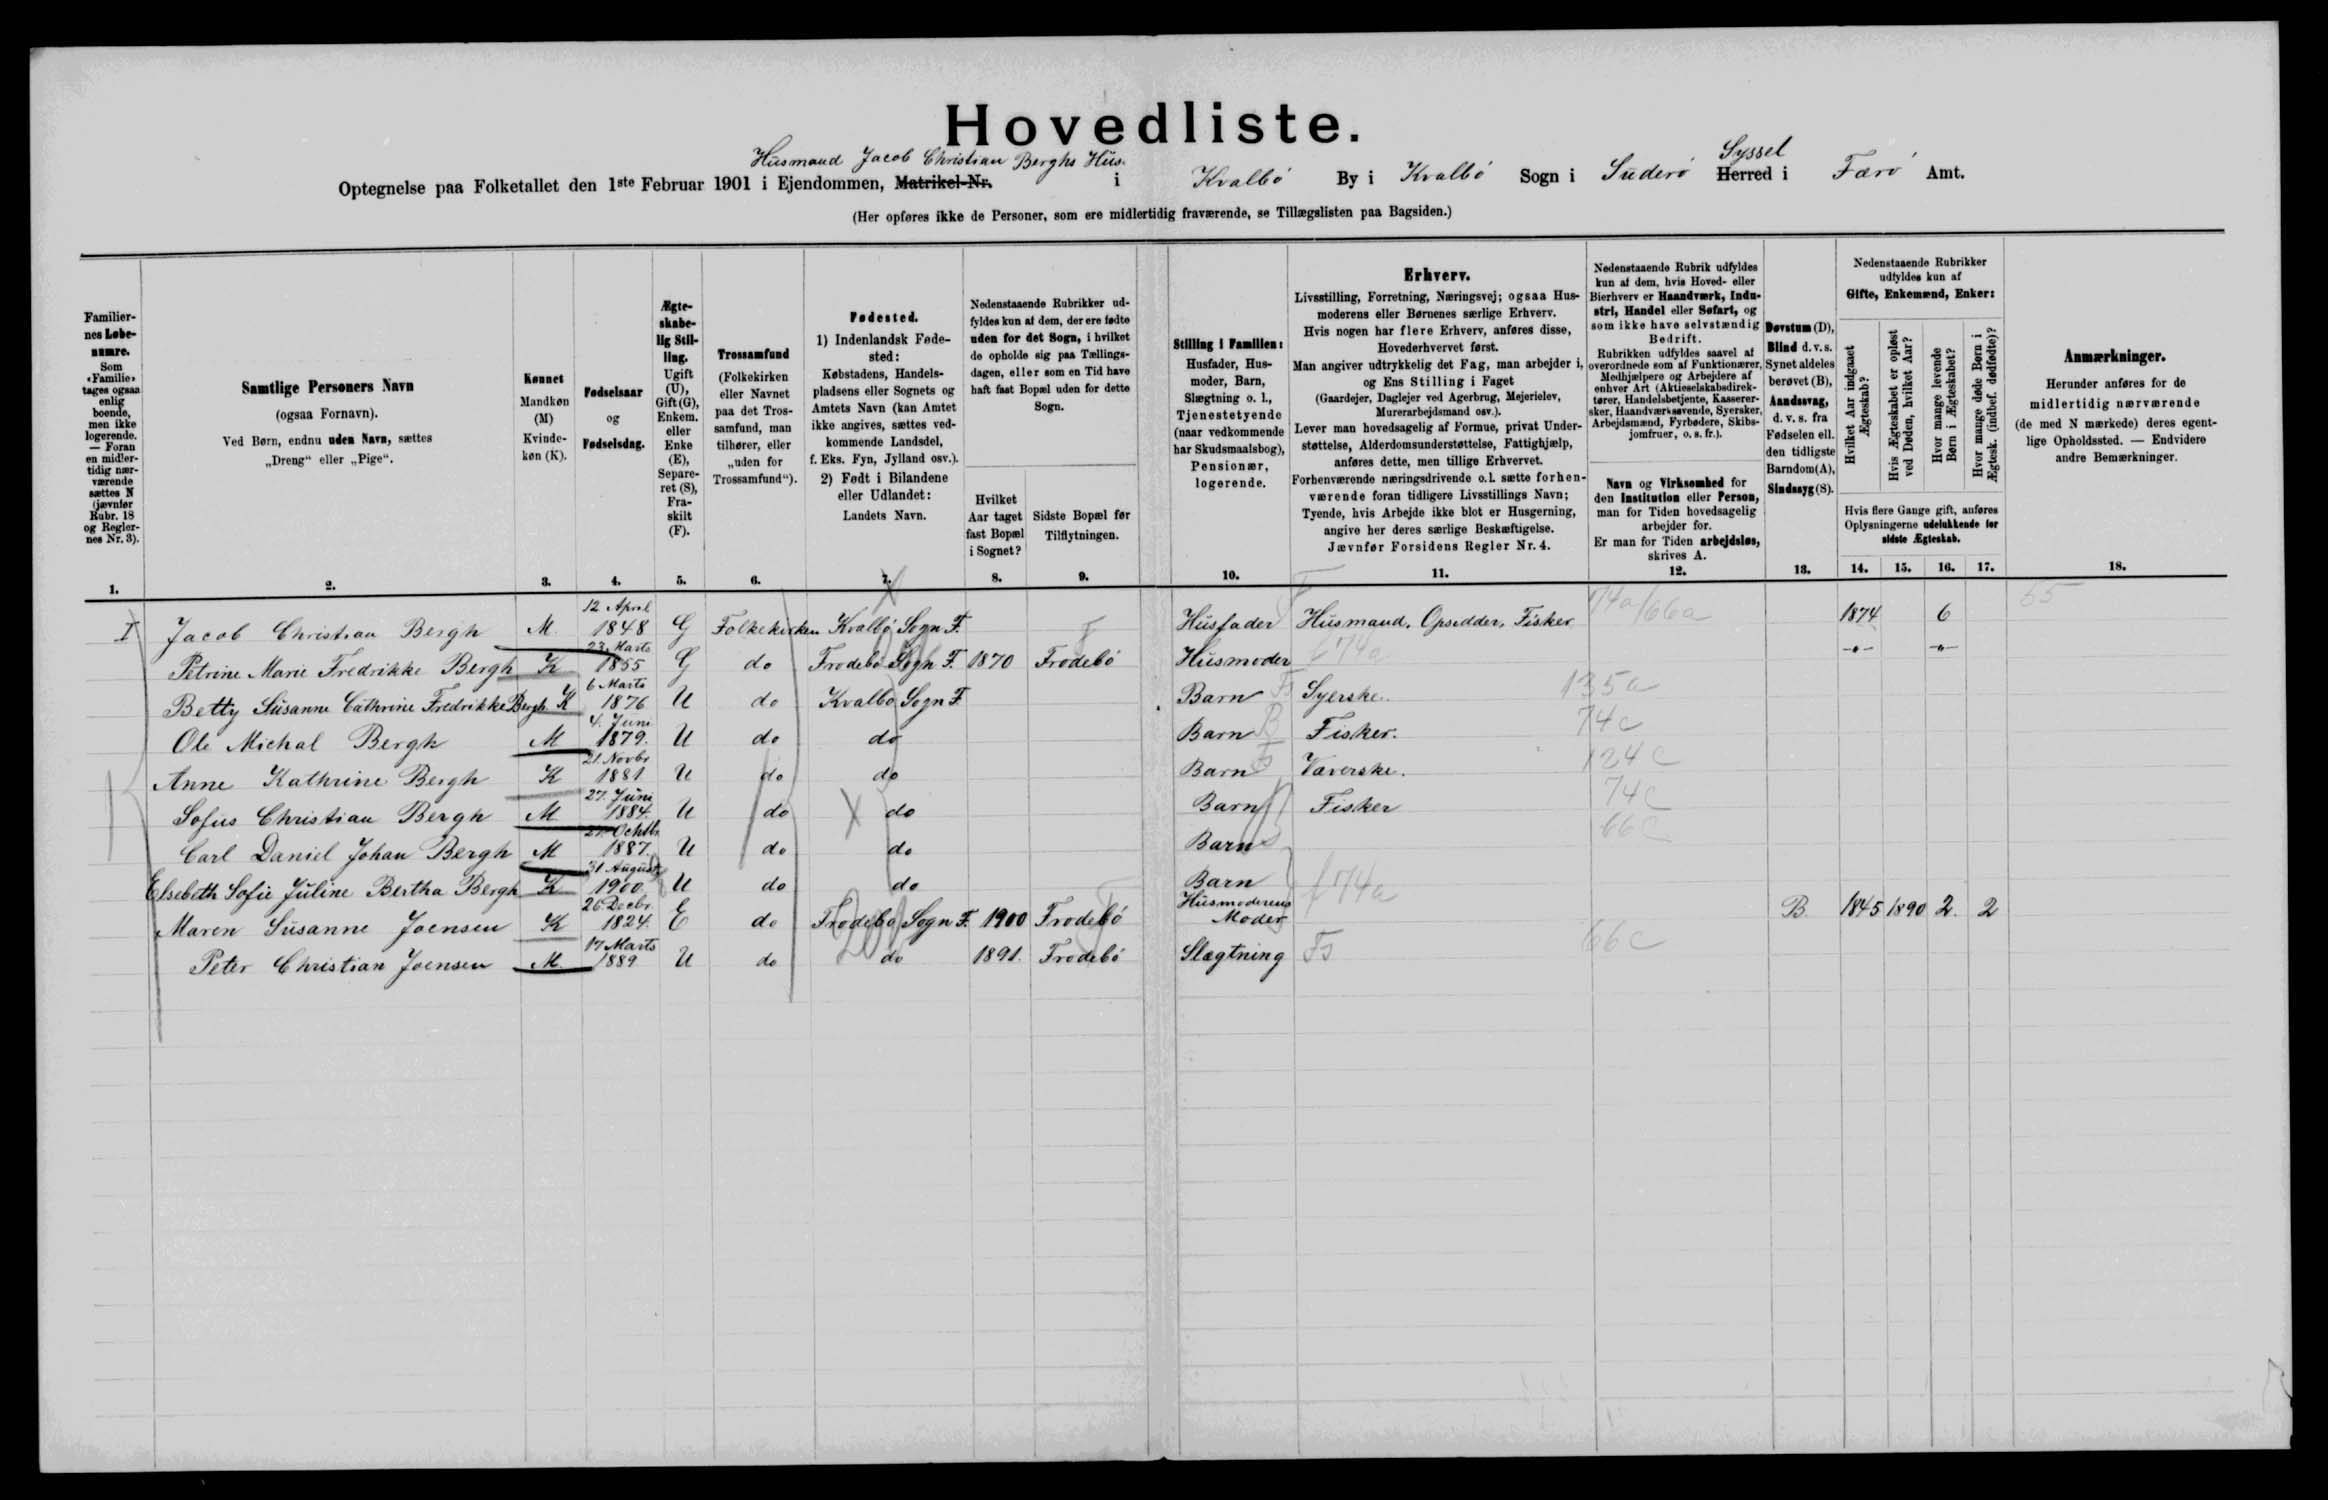 Hovedliste.
Husmand Jacob Christian Berghs Hus. Syssel
Optegnelse paa Folketallet den 1ste Februar 1901 i Ejendommen, Matrikel-Nr. i Kvalbó By i Kvalbó Sogn i Suderó Herred i Færó Amt.
(Her opføres ikke de Personer, som ere midlertidig fraværende, se Tillægslisten paa Bagsiden.)
Familier-
nes Løbe-
numre.
Som
«Familie»
tages ogsaa
enlig
boende,
men ikke
logerende.
— Foran
en midler-
tidig nær-
værende
sættes N
(jævnfør
Rubr. 18
og Regler-
nes Nr. 3).
1.
Samtlige Personers Navn
(ogsaa Fornavn).
Ved Børn, endnu uden Navn, sættes
„Dreng“ eller „Pige“.
2.
Kønnet
Mandkøn
(M)
Kvinde-
køn (K).
3.
Fødselsaar
og
Fødselsdag.
4.
Ægte-
skabe-
lig Stil-
ling.
Ugift
(U),
Gift (G),
Enkem.
eller
Enke
(E),
Separe-
ret (S),
Fra-
skilt
(F).
5.
Trossamfund
(Folkekirken
eller Navnet
paa det Tros-
samfund, man
tilhører, eller
„uden for
Trossamfund“).
6.
Fødested.
1) Indenlandsk Føde-
sted:
Købstadens, Handels-
pladsens eller Sognets og
Amtets Navn (kan Amtet
ikke angives, sættes ved-
kommende Landsdel,
f. Eks. Fyn, Jylland osv.).
2) Født i Bilandene
eller Udlandet:
Landets Navn.
7.
Nedenstaaende Rubrikker ud-
fyldes kun af dem, der ere fødte
uden for det Sogn, i hvilket
de opholde sig paa Tællings-
dagen, eller som en Tid have
haft fast Bopæl uden for dette
Sogn.
Hvilket
Aar taget
fast Bopæl
i Sognet?
8.
Sidste Bopæl før
Tilflytningen.
9.
Stilling i Familien:
Husfader, Hus-
moder, Barn,
Slægtning o. l.,
Tjenestetyende
(naar vedkommende
har Skudsmaalsbog),
Pensionær,
logerende.
10.
Erhverv.
Livsstilling, Forretning, Næringsvej; ogsaa Hus-
moderens eller Børnenes særlige Erhverv.
Hvis nogen har flere Erhverv, anføres disse,
Hovederhvervet først.
Man angiver udtrykkelig det Fag, man arbejder i,
og Ens Stilling i Faget
(Gaardejer, Daglejer ved Agerbrug, Mejerielev,
Murerarbejdsmand osv.).
Lever man hovedsagelig af Formue, privat Under-
støttelse, Alderdomsunderstøttelse, Fattighjælp,
anføres dette, men tillige Erhvervet.
Forhenværende næringsdrivende o.l. sætte forhen-
værende foran tidligere Livsstillings Navn;
Tyende, hvis Arbejde ikke blot er Husgerning,
angive her deres særlige Beskæftigelse.
Jævnfør Forsidens Regler Nr. 4.
11.
Nedenstaaende Rubrik udfyldes
kun af dem, hvis Hoved- eller
Bierhverv er Haandværk, Indu-
stri, Handel eller Søfart, og
som ikke have selvstændig
Bedrift.
Rubrikken udfyldes saavel af
overordnede som af Funktionærer,
Medhjælpere og Arbejdere af
enhver Art (Aktieselskabsdirek-
tører, Handelsbetjente, Kasserer-
sker, Haandværkssvende, Syersker,
Arbejdsmænd, Fyrbødere, Skibs-
jomfruer, o. s. fr.).
Navn og Virksomhed for
den Institution eller Person,
man for Tiden hovedsagelig
arbejder for.
Er man for Tiden arbejdsløs,
skrives A.
12.
Døvstum (D),
Blind d. v. s.
Synet aldeles
berøvet (B),
Aandssvag,
d. v. s. fra
Fødselen ell.
den tidligste
Barndom (A),
Sindssyg (S).
13.
Nedenstaaende Rubrikker
udfyldes kun af
Gifte, Enkemænd, Enker:
Hvilket Aar indgaaet
Ægteskab?
Hvis Ægteskabet er opløst
ved Døden, hvilket Aar?
Hvor mange levende
Børn i Ægteskabet?
Hvor mange døde Børn i
Ægtesk. (indbef. dødfødte)?
Hvis flere Gange gift, anføres
Oplysningerne udelukkende for
sidste Ægteskab.
14. 15. 16. 17.
Anmærkninger.
Herunder anføres for de
midlertidig nærværende
(de med N mærkede) deres egent-
lige Opholdssted. — Endvidere
andre Bemærkninger.
18.
I Jacob Christian Bergh M. 12 April 1848 G Folkekirken Kvalbó Sogn F. Husfader Husmand, Opsidder, Fisker 74a/66a 1874 6 55
Petrine Marie Fredrikke Bergh K 23 Marts 1855 G do Frodebó Sogn F. 1870 Frodebó Husmoder f 74a -"- -"-
Betty Susanne Cathrine Fredrikke Bergh K 6 Marts 1876 U do Kvalbó Sogn F. Barn Fs Syerske. 135a
Ole Michal Bergh M 4. Juni 1879. U do do Barn B Fisker. 74c
Anne Kathrine Bergh K 21. Novbr 1881 U do do Barn Fs Væverske. 124c
Sofus Christian Bergh M 27. Juni 1884. U do do Barn Fisker 74c
Carl Daniel Johan Bergh M 27. Octbr. 1887. U do do Barn 66c
Elsebeth Sofie Juline Bertha Bergh K 31 August 1900 U do do Barn
Maren Susanne Joensen K 26 Decbr. 1824. E do Frodebó Sogn F. 1900 Frodebó Husmoderens Moder f 74a B. 1845 1890 2. 2
Peter Christian Joensen M. 17 Marts 1889 U do do 1891. Frodebó Slægtning Fs 66c